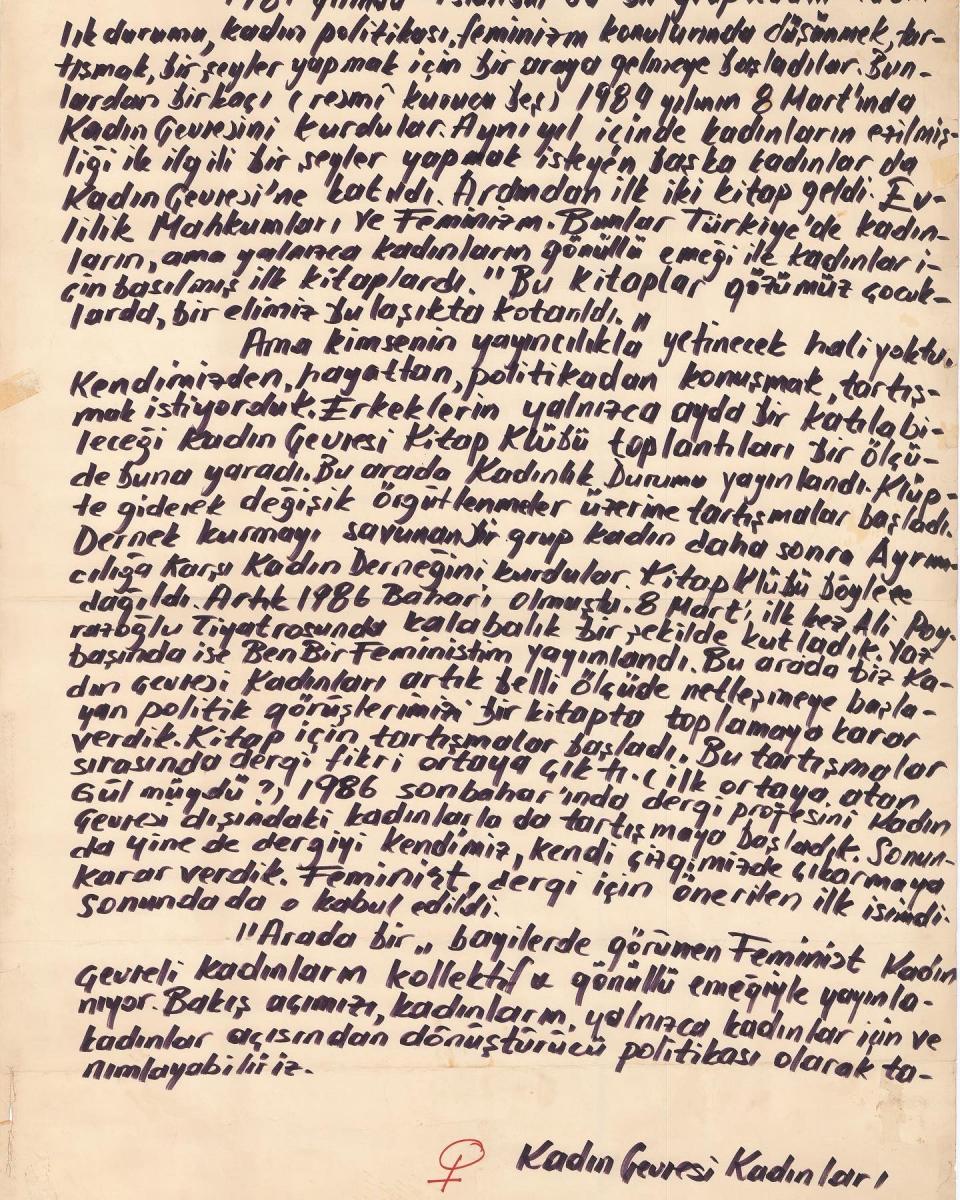 lık durumu, kadın politikası, feminizm konularında düşünmek, tar-
tışmak, bir şeyler yapmak için bir araya gelmeye başladılar. Bun-
lardan birkaçı (resmî kurucu beş) 1984 yılının 8 Mart'ında
Kadın Çevresini kurdular. Aynı yıl içinde kadınların ezilmiş-
liği ile ilgili bir şeyler yapmak isteyen başka kadınlar da
Kadın Çevresi'ne katıldı. Ardından ilk iki kitap geldi. Ev-
lilik Mahkumları ve Feminizm. Bunlar Türkiye'de kadın-
ların, ama yalnızca kadınların gönüllü emeği ile kadınlar i-
çin basılmış ilk kitaplardı. "Bu kitaplar gözümüz çocuk-
larda, bir elimiz bulaşıkta kotarıldı."
Ama kimsenin yayıncılıkla yetinecek hali yoktu.
Kendimizden, hayattan, politikadan konuşmak, tartış-
mak istiyorduk. Erkeklerin yalnızca ayda bir katılabi-
leceği Kadın Çevresi Kitap Klübü toplantıları bir ölçü-
de buna yaradı. Bu arada Kadınlık Durumu yayınlandı. Klüp-
te giderek değişik örgütlenmeler üzerine tartışmalar başladı.
Dernek kurmayı savunan bir grup kadın daha sonra Ayrım-
cılığa Karşı Kadın Derneğini kurdular. Kitap Klübü böylece
dağıldı. Artık 1986 Baharı olmuştu. 8 Mart'ı ilk kez Ali Poy-
razoğlu Tiyatrosunda kalabalık bir şekilde kutladık. Yaz
başında ise Ben Bir Feministim yayınlandı. Bu arada biz Ka-
dın Çevresi Kadınları artık belli ölçüde netleşmeye başla-
yan politik görüşlerimizi bir kitapta toplamaya karar
verdik. Kitap için tartışmalar başladı. Bu tartışmalar
sırasında dergi fikri ortaya çıktı. (ilk ortaya atan
Gül müydü?) 1986 sonbahar'ında dergi projesini Kadın
Çevresi dışındaki kadınlarla da tartışmaya başladık. Sonun-
da yine de dergiyi kendimiz, kendi çizgimizde çıkarmaya
karar verdik. Feminist, dergi için önerilen ilk isimdi.
Sonunda da o kabul edildi.
"Arada bir" bayilerde görünen Feminist Kadın
Çevreli kadınların kollektif & gönüllü emeğiyle yayınla-
nıyor. Bakış açımızı, kadınların, yalnızca kadınlar için ve
kadınlar açısından dönüştürücü politikası olarak ta-
nımlayabiliriz.
Kadın Çevresi Kadınları